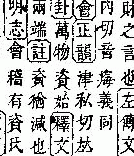 財之言也左傳文
内切義同
會正韻津私切𠀤
卦萬物資始釋文
兩端註資猶減也
明志會稽有資氏